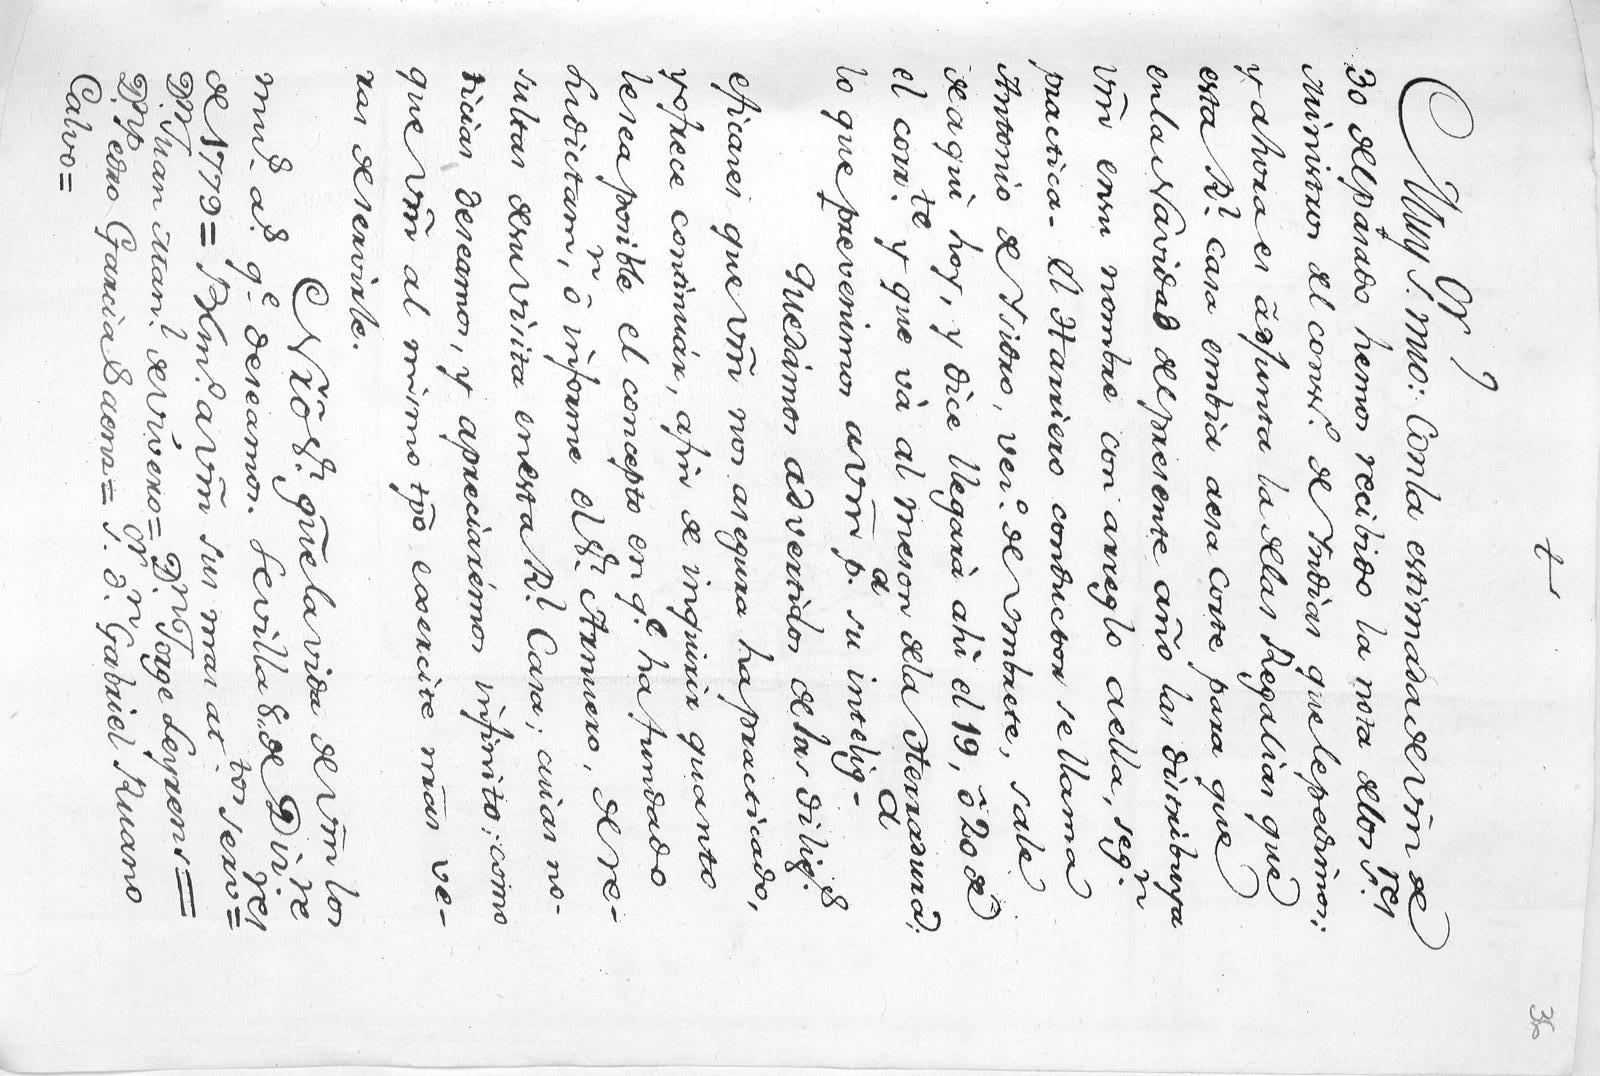 +
36
Muy S.or mio: Con la estimada de Vm̃ de
30 del pasado hemos recibido la nota de los S.res
Ministros del cons.o de Yndias que le pedimos;
y ahora es adjunta la de las Regalias que
esta R.l casa embia a esa Corte para que
en la Navidad de presente año las distribuya
Vm̃ en su nombre con arreglo a ella, seg.n
practica. El Harriero conductor se llama
Antonio de Ysidro, vec.o de Ombrete, sale
de aqui hoy, y dice llegará ahi el 19, ô 20 de
el corr.te y que vá al meson de la Herradura;
lo que prevenimos a Vm̃ p.a su intelig.a
Quedamos advertidos de las dilig.s
eficaces que Vm̃ nos asegura ha practicado,
y ofrece continuar, afin de inquirir quanto
le sea posible el concepto en q.e ha fundado
su dictam.n, ô informe el S.r Armero, de re-
sultas de su visita en esta R.l Casa; cuias no-
ticias deseamos, y apreciarémos infinito: como
que Vm̃ al mismo tpõ exercite nr̃as ve-
ras de servirle.
Nr̃o S.r gũe la vida de Vm̃ los
much.s a.s q.e deseamos. Sevilla 8 de Dizi.re
de 1779 = B.l m.o a Vm̃ sus mas at.tos serv.res =
D.n Juan Man.l de Vivero = D.n Jorge
D.n Pedro Garcia S.r D.n Gabriel Ruano
Calvo =